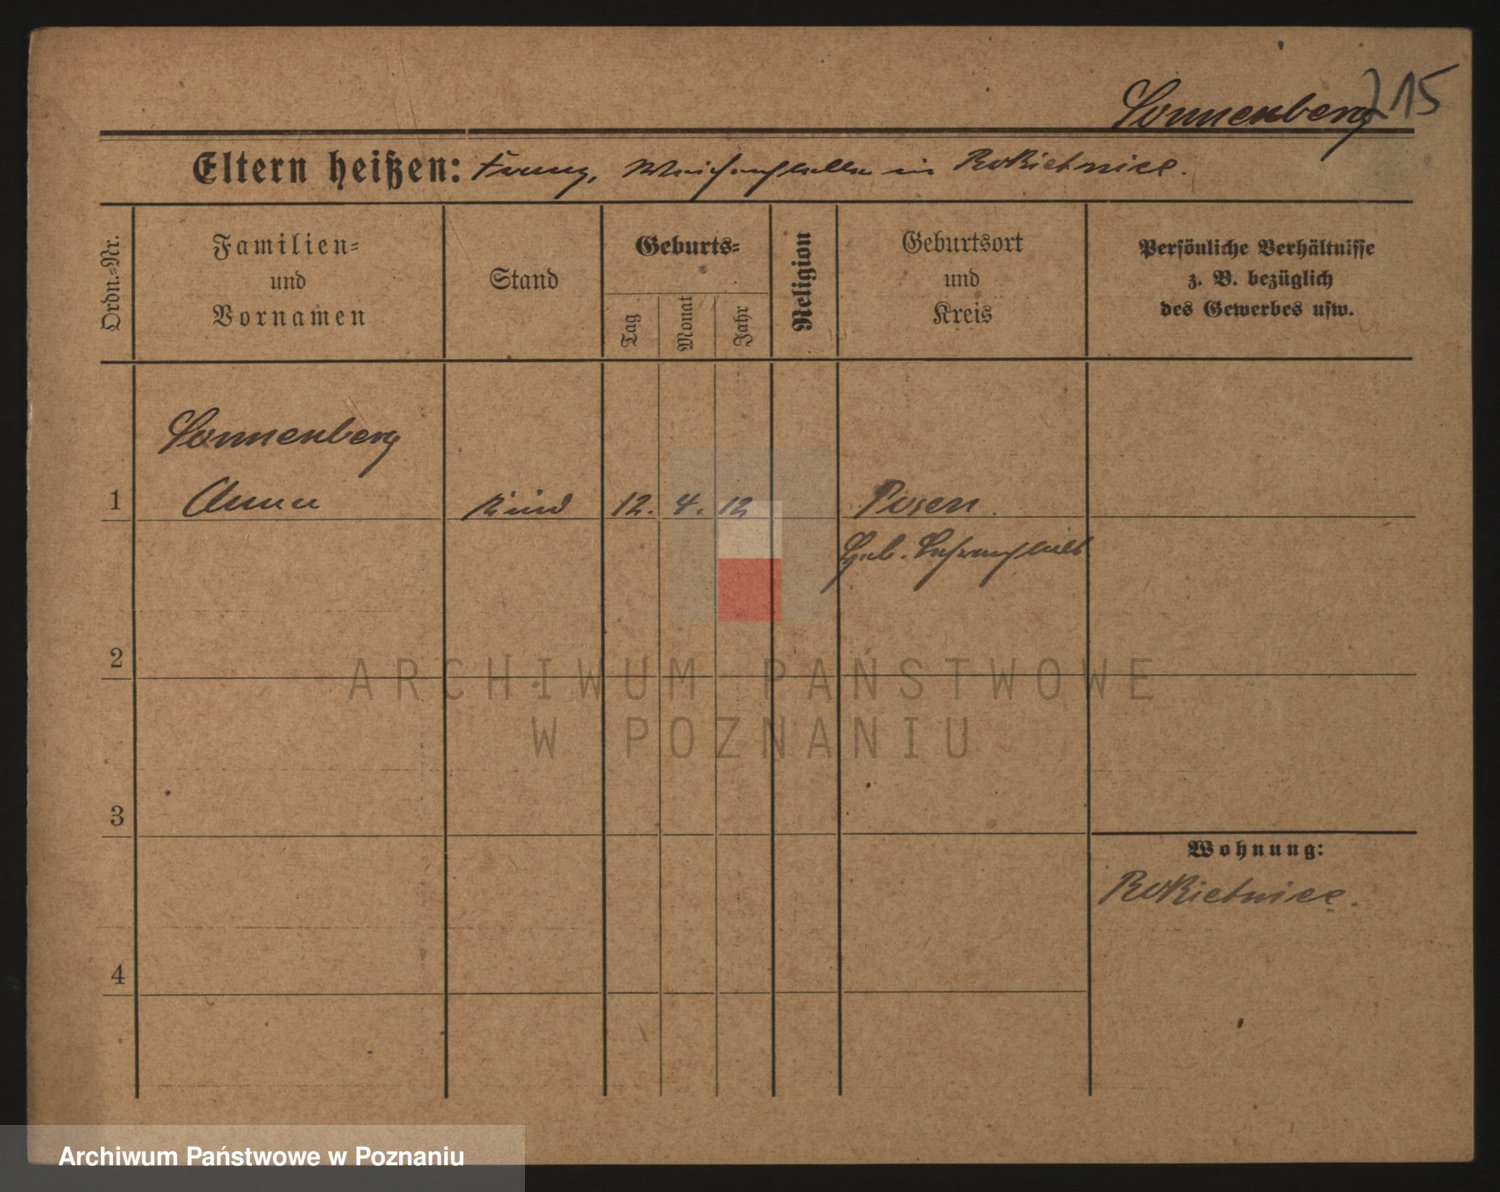 215
Sonnenberg
Eltern heißen: Franz, Weichensteller in Rokietnice.
Ordn.-Nr.
Familien-
und
Vornamen
Stand
Geburts-
Tag
Monat
Jahr
Religion
Geburtsort
und
Kreis
Persönliche Verhältnisse
z. B. bezüglich
des Gewerbes usw.
Sonnenberg
1 Anna Kind 12. 4. 12 Posen
Geb.
2
ARCHIWUM PAŃSTWOWE
W POZNANIU
3
Wohnung:
Rokietnice.
4
Archiwum Państwowe w Poznaniu